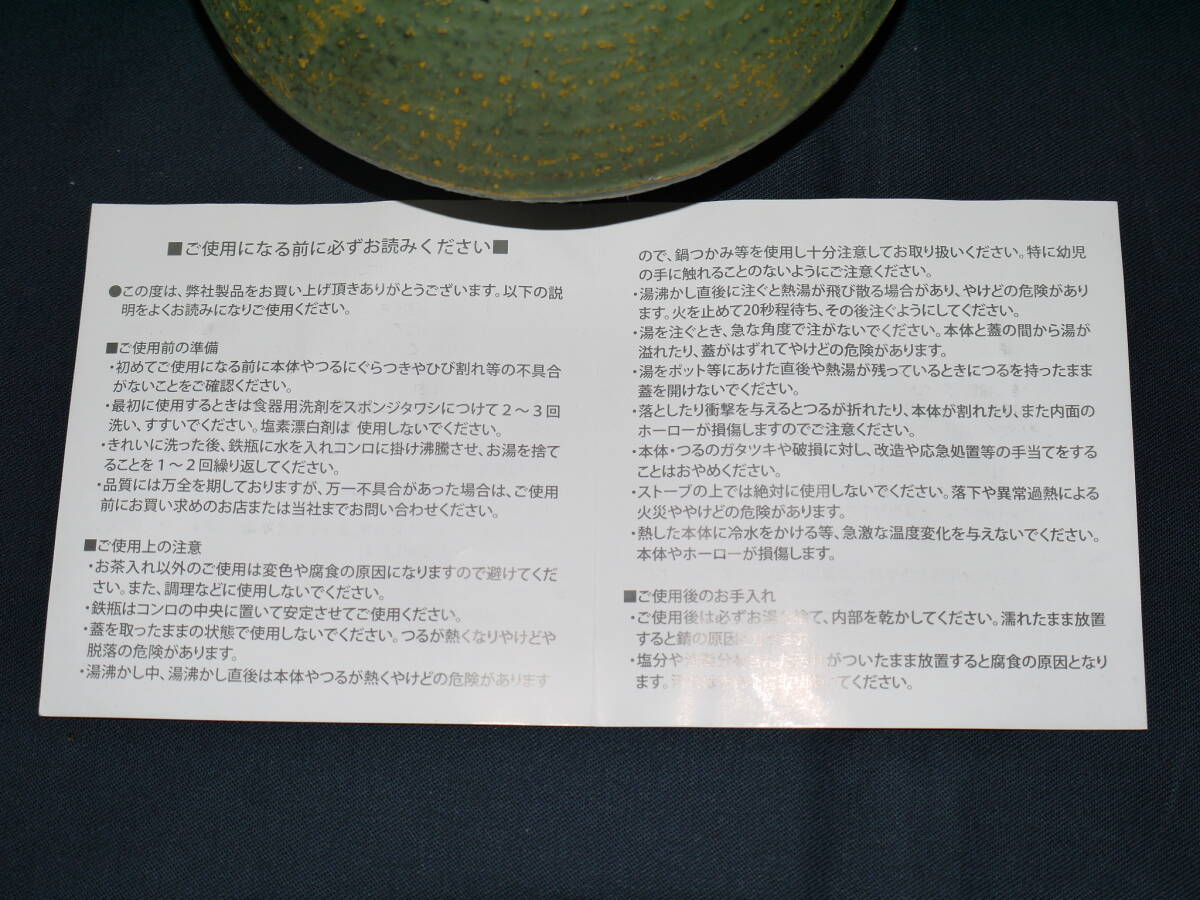 ■ご使用になる前に必ずお読みください■
●この度は、弊社製品をお買い上げ頂きありがとうございます。以下の説
明をよくお読みになりご使用ください。
■ご使用前の準備
・初めてご使用になる前に本体やつるにぐらつきやひび割れ等の不具合
がないことをご確認ください。
・最初に使用するときは食器用洗剤をスポンジタワシにつけて２～３回
洗い、すすいでください。塩素漂白剤は 使用しないでください。
・きれいに洗った後、鉄瓶に水を入れコンロに掛け沸騰させ、お湯を捨て
ることを１～２回繰り返してください。
・品質には万全を期しておりますが、万一不具合があった場合は、ご使用
前にお買い求めのお店または当社までお問い合わせください。
■ご使用上の注意
・お茶入れ以外のご使用は変色や腐食の原因になりますので避けてくだ
さい。また、調理などに使用しないでください。
・鉄瓶はコンロの中央に置いて安定させてご使用ください。
・蓋を取ったままの状態で使用しないでください。つるが熱くなりやけどや
脱落の危険があります。
・湯沸かし中、湯沸かし直後は本体やつるが熱くやけどの危険があります
ので、鍋つかみ等を使用し十分注意してお取り扱いください。特に幼児
の手に触れることのないようにご注意ください。
・湯沸かし直後に注ぐと熱湯が飛び散る場合があり、やけどの危険があり
ます。火を止めて20秒程待ち、その後注ぐようにしてください。
・湯を注ぐとき、急な角度で注がないでください。本体と蓋の間から湯が
溢れたり、蓋がはずれてやけどの危険があります。
・湯をポット等にあけた直後や熱湯が残っているときにつるを持ったまま
蓋を開けないでください。
・落としたり衝撃を与えるとつるが折れたり、本体が割れたり、また内面の
ホーローが損傷しますのでご注意ください。
・本体・つるのガタツキや破損に対し、改造や応急処置等の手当てをする
ことはおやめください。
・ストーブの上では絶対に使用しないでください。落下や異常過熱による
火災ややけどの危険があります。
・熱した本体に冷水をかける等、急激な温度変化を与えないでください。
本体やホーローが損傷します。
■ご使用後のお手入れ
・ご使用後は必ずお湯を捨て、内部を乾かしてください。濡れたまま放置
すると錆の原因
・塩分や がついたまま放置すると腐食の原因となり
ます。 てください。